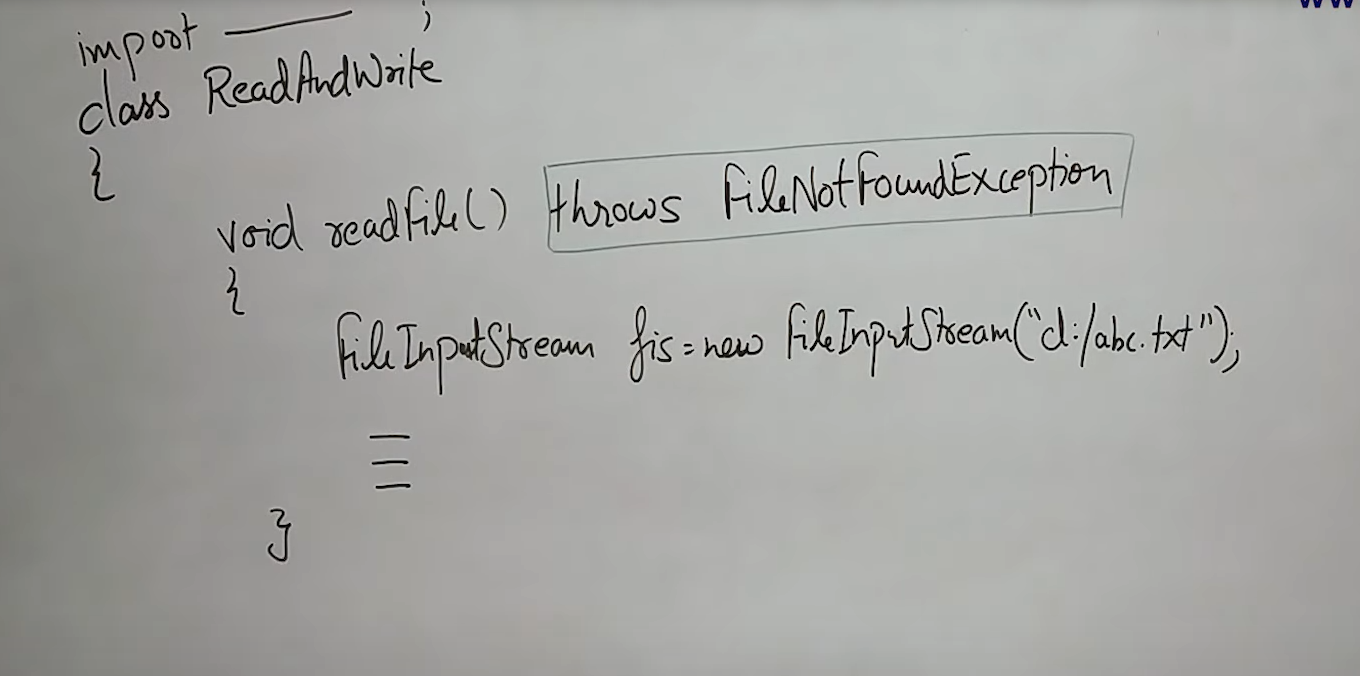 import ______ ;
class ReadAndWrite
{
void readFile() throws FileNotFoundException
{
FileInputStream fis = new FileInputStream("d:/abc.txt");
}